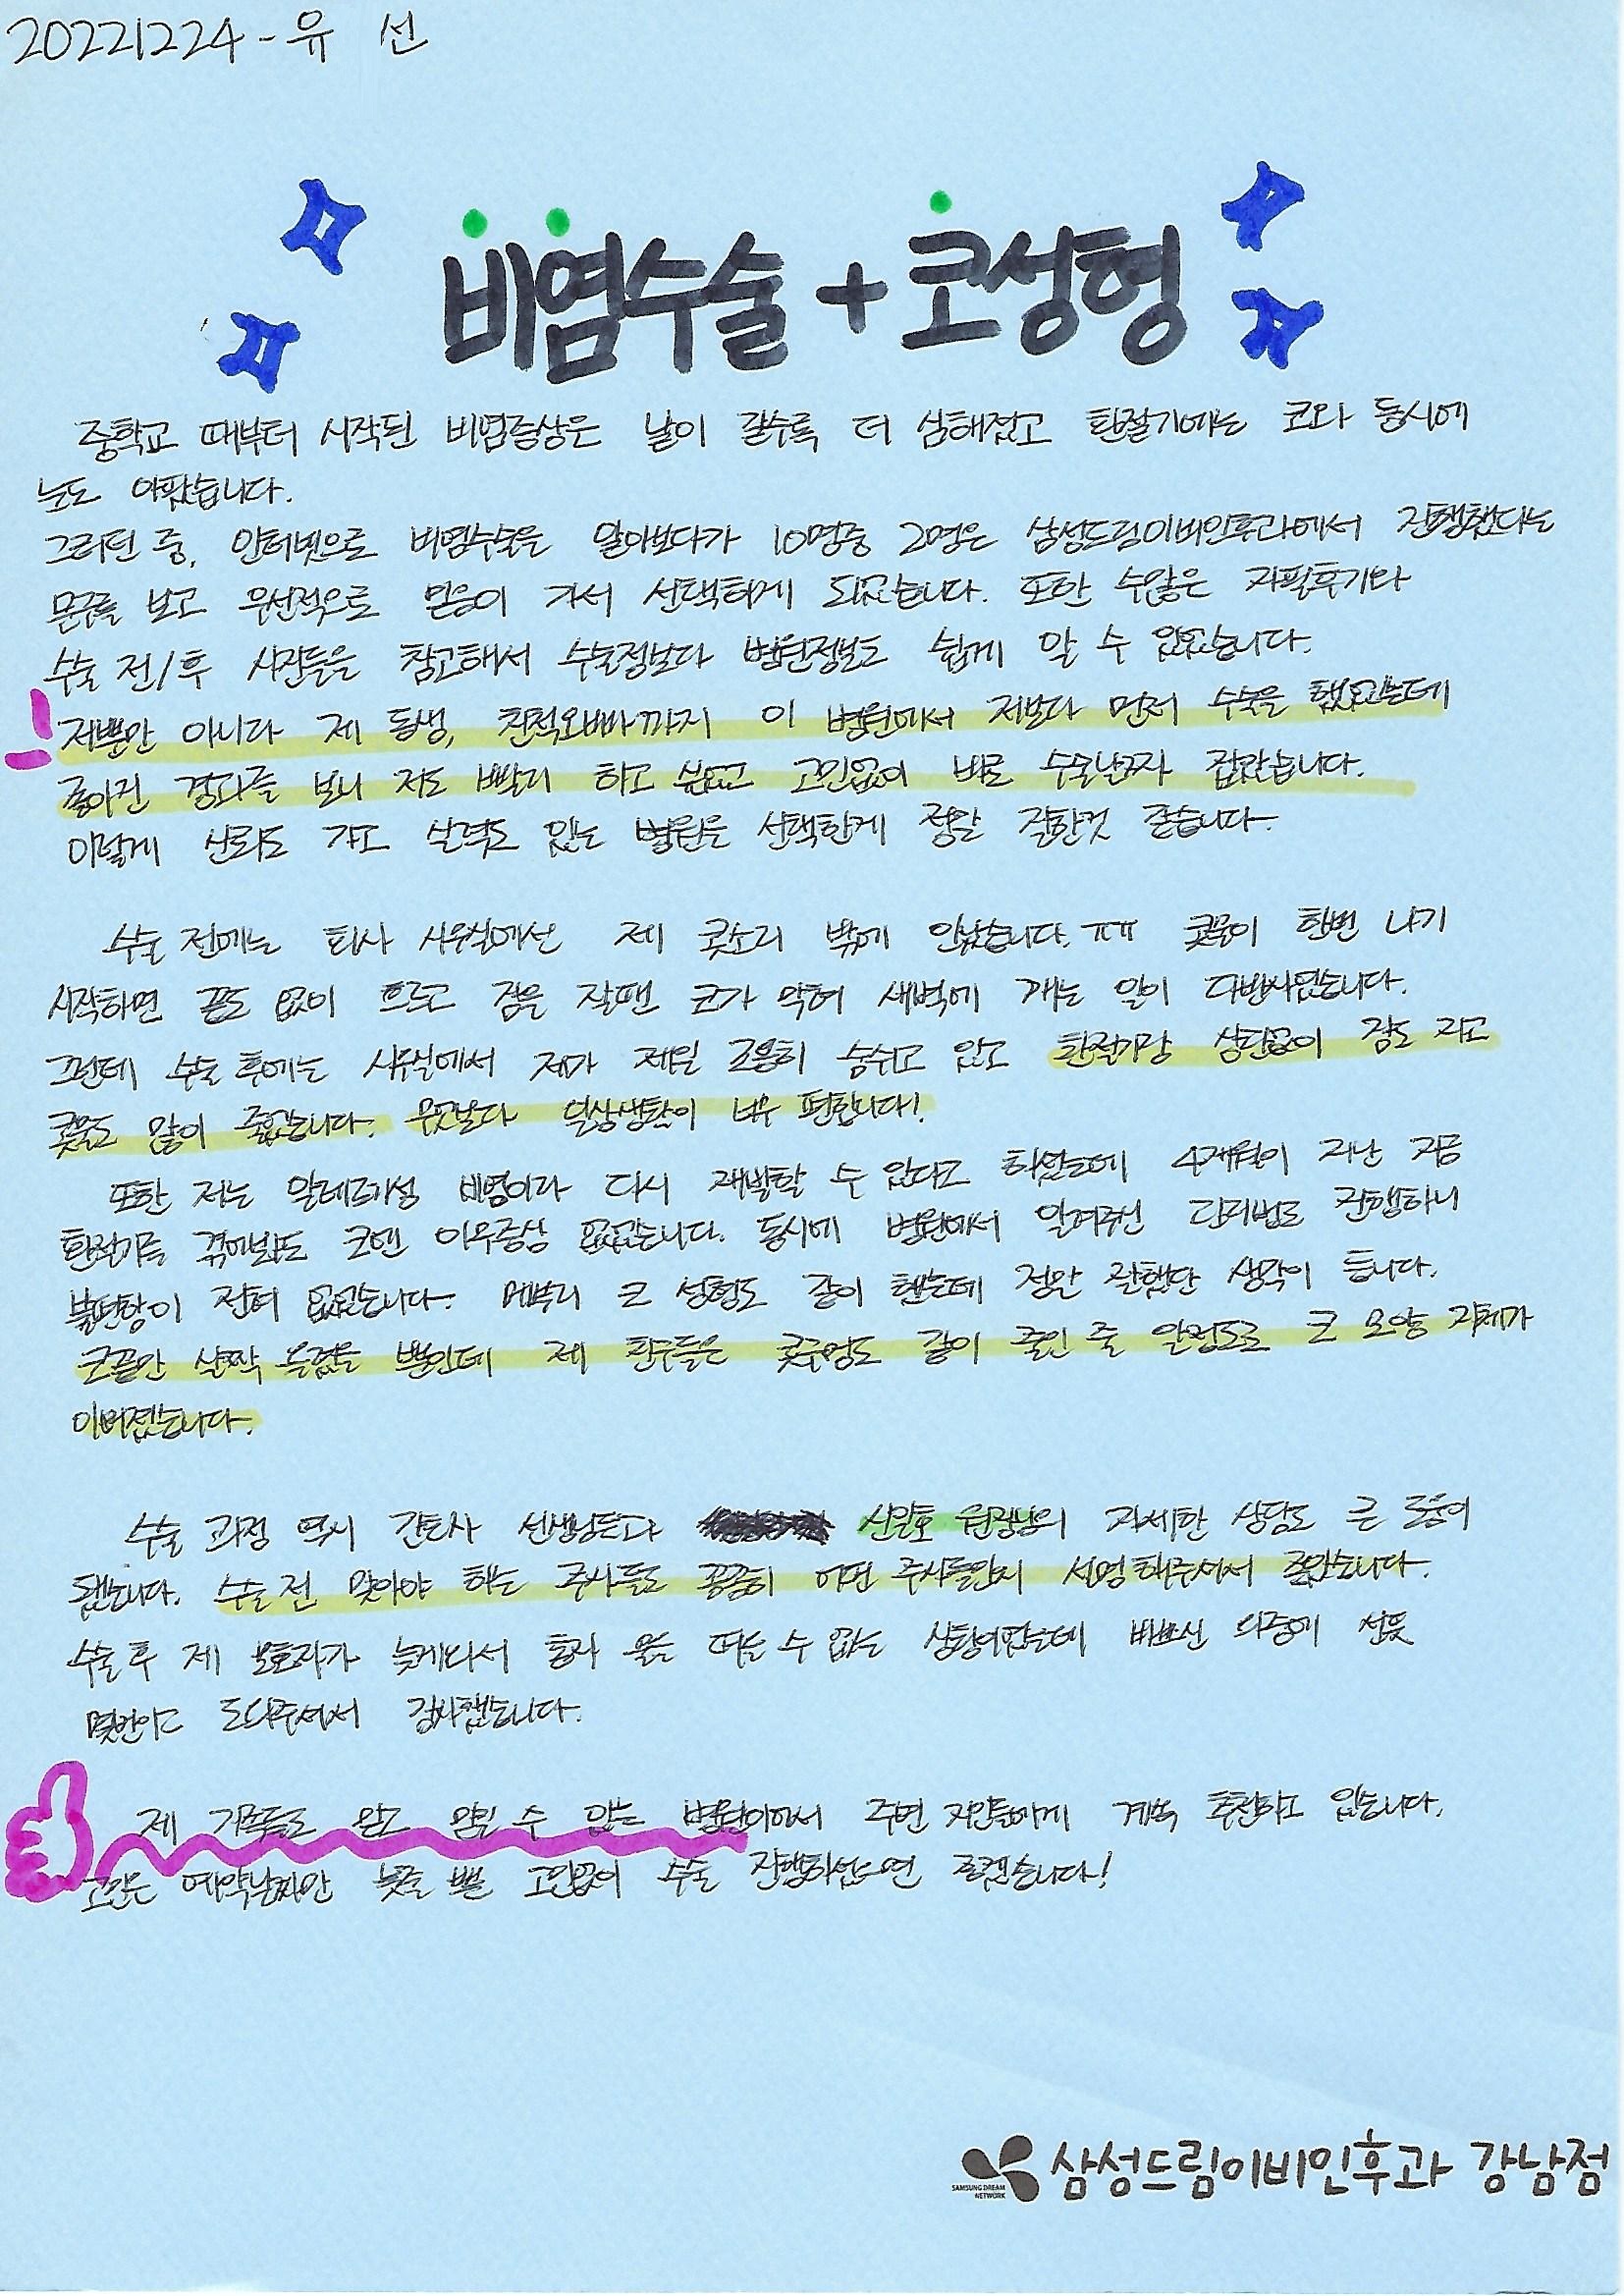 20221224-유 선
비염수술 + 코성형
중학교 때부터 시작된 비염증상은 날이 갈수록 더 심해졌고 환절기에는 코와 동시에
눈도 아팠습니다.
그러던 중, 인터넷으로 비염수술을 알아보다가 10명중 2명은 삼성드림이비인후과에서 진행했다는
문구를 보고 우선적으로 믿음이 가서 선택하게 되었습니다. 또한 수많은 자필후기와
수술 전/후 사진들을 참고해서 수술정보다 병원정보도 쉽게 알 수 있었습니다.
저뿐만 아니라 제 동생, 친척오빠까지 이 병원에서 저보다 먼저 수술을 했었는데
좋아진 경과를 보니 저도 빨리 하고 싶었고 고민없이 바로 수술날짜 잡았습니다.
이렇게 신뢰도 가고 실력도 있는 병원을 선택한게 정말 잘한것 같습니다.
수술 전에는 회사 사무실에선 제 콧소리 밖에 안났습니다.ㅠㅠ 콧물이 한번 나기
시작하면 끝도 없이 흐르고 잠을 잘땐 코가 막혀 새벽에 깨는 일이 다반사였습니다.
그런데 수술 후에는 사무실에서 제가 제일 조용히 숨쉬고 있고 환절기랑 상관없이 잠도 자고
콧물도 많이 줄었습니다. 무엇보다 일상생활이 너무 편합니다!
또한 저는 알레르기성 비염이라 다시 재발할 수 있다고 하였는데 4개월이 지난 지금
환절기를 겪어봐도 코엔 아무증상 없었습니다. 동시에 병원에서 알려주신 관리법도 진행하니
불편함이 전혀 없었습니다. 메부리 코 성형도 같이 했는데 정말 잘했단 생각이 듭니다.
코끝만 살짝 올렸을 뿐인데 제 친구들은 콧구멍도 같이 줄인 줄 알정도로 코 모양 자체가
이뻐졌습니다.
수술 과정 역시 간호사 선생님들과 신일호 원장님의 자세한 상담도 큰 도움이
됐습니다. 수술 전 맞아야 하는 주사들도 꼼꼼히 어떤 주사들인지 설명해주셔서 좋았습니다.
수술 후 제 보호자가 늦게와서 혼자 옷을 떼는 수 없는 상황이었는데 바쁘신 와중에 선뜻
몇번이고 도와주셔서 감사했습니다.
제 가족들도 받고 믿을 수 있는 병원이어서 주변 지인들에게 계속 추천하고 있습니다.
고민은 예약날짜만 늦출 뿐 고민없이 수술 진행하셨으면 좋겠습니다!
SAMSUNG DREAM
NETWORK
삼성드림이비인후과 강남점